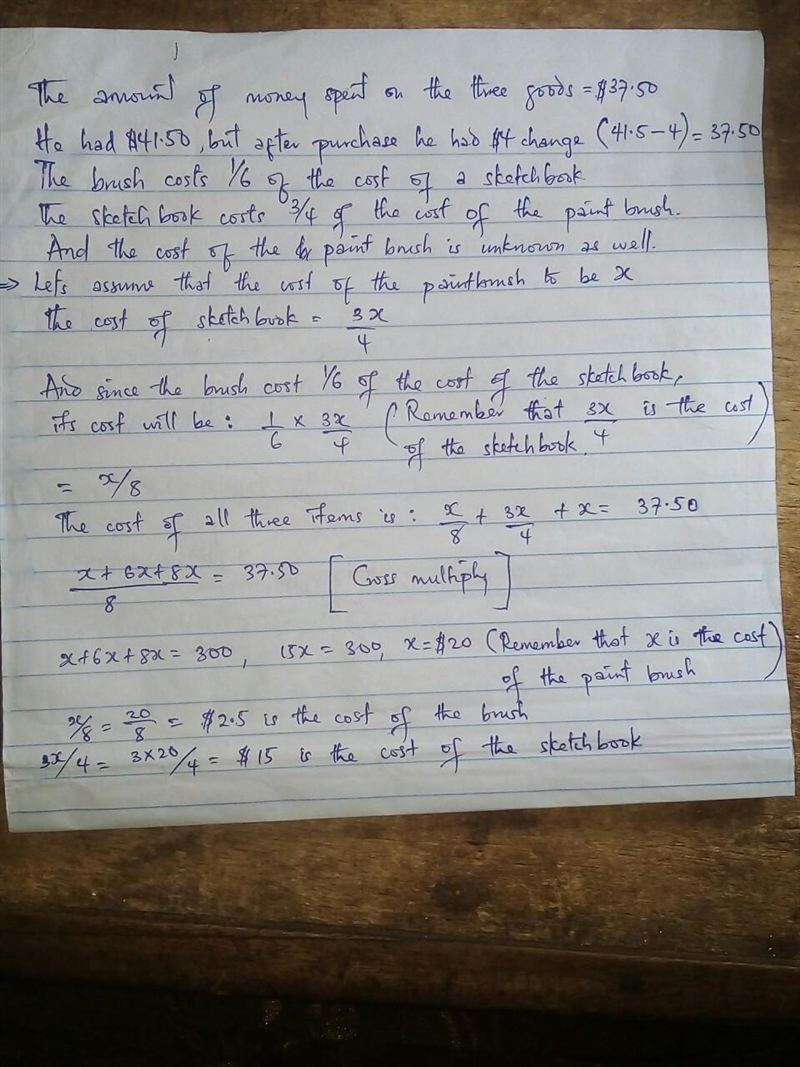 The amount of money spent on the three goods = $37.50
He had $41.50, but after purchase he had $4 change (41.5-4) = 37.50
The brush costs 1/6 of the cost of a sketchbook
The sketchbook costs 3/4 of the cost of the paint brush.
And the cost of the paint brush is unknown as well.
=> Lets assume that the cost of the paintbrush to be x
The cost of sketchbook = 3x/4
And since the brush cost 1/6 of the cost of the sketchbook,
its cost will be: 1/6 × 3x/4 (Remember that 3x/4 is the cost of the sketchbook.)
= x/8
The cost of all three items is: x/8 + 3x/4 + x = 37.50
x+6x+8x/8 = 37.50 [Cross multiply]
x+6x+8x = 300, 15x = 300, x=$20 (Remember that x is the cost of the paint brush)
x/8 = 20/8 = $2.5 is the cost of the brush
3x/4 = 3×20/4 = $15 is the cost of the sketchbook